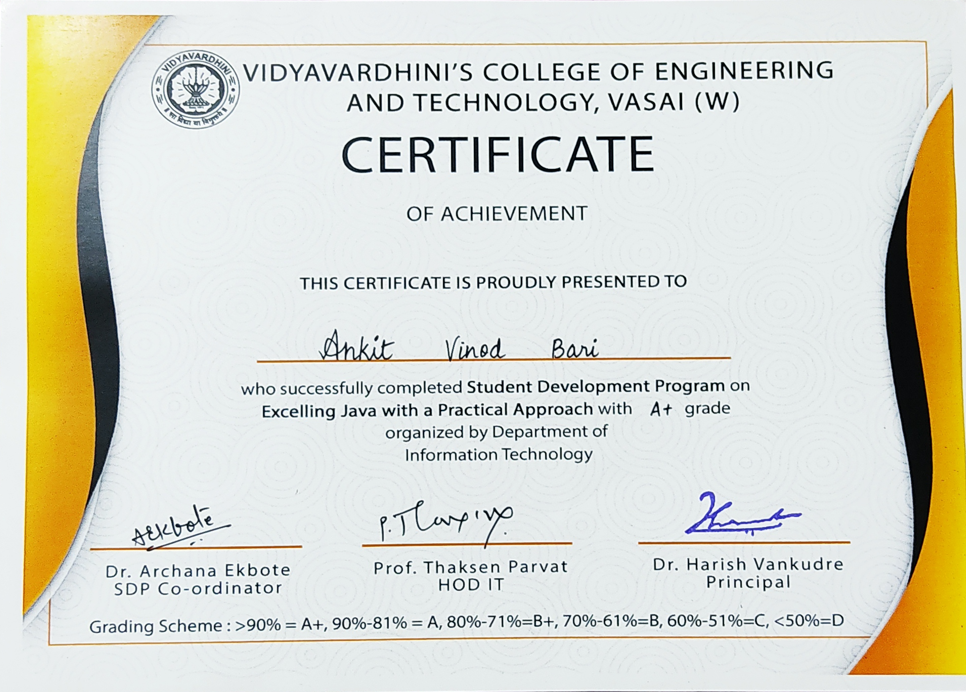 VIDYAVARDHINI
VIDYAVARDHINI'S COLLEGE OF ENGINEERING
AND TECHNOLOGY, VASAI (W)
CERTIFICATE
OF ACHIEVEMENT
THIS CERTIFICATE IS PROUDLY PRESENTED TO
Ankit Vinod Bari
who successfully completed Student Development Program on
Excelling Java with a Practical Approach with A+ grade
organized by Department of
Information Technology
AEkbote
Dr. Archana Ekbote
SDP Co-ordinator
Prof. Thaksen Parvat
HOD IT
Dr. Harish Vankudre
Principal
Grading Scheme : >90% = A+, 90%-81% = A, 80%-71%=B+, 70%-61%=B, 60%-51%=C, <50%=D